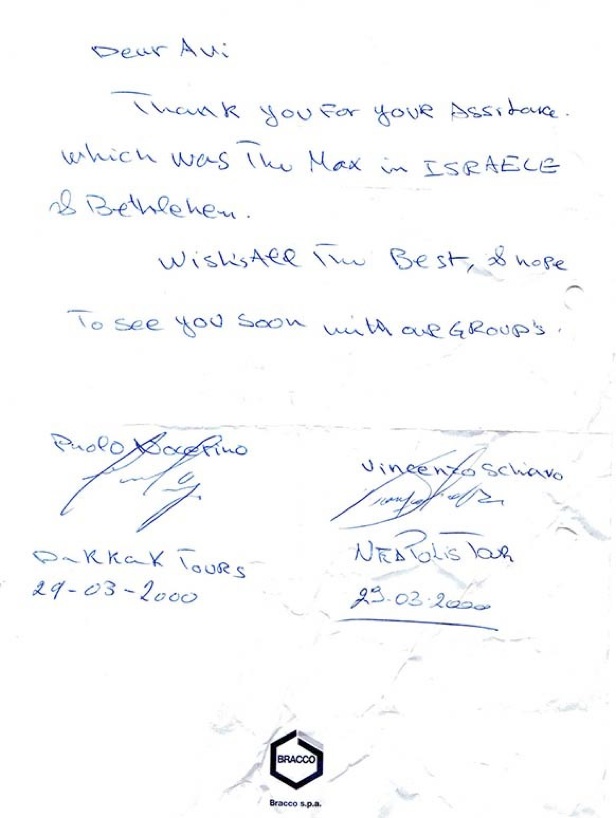 Dear Avi
Thank you For your Assitance.
which was The Max in ISRAELE
& Bethlehem.
Wish's All The Best, & hope
To see you soon with our GROUP's.
Paolo
Vincenzo Schiavo
Dakkak Tours
29-03-2000
NEAPolis Tour
29.03.2000
BRACCO
Bracco s.p.a.